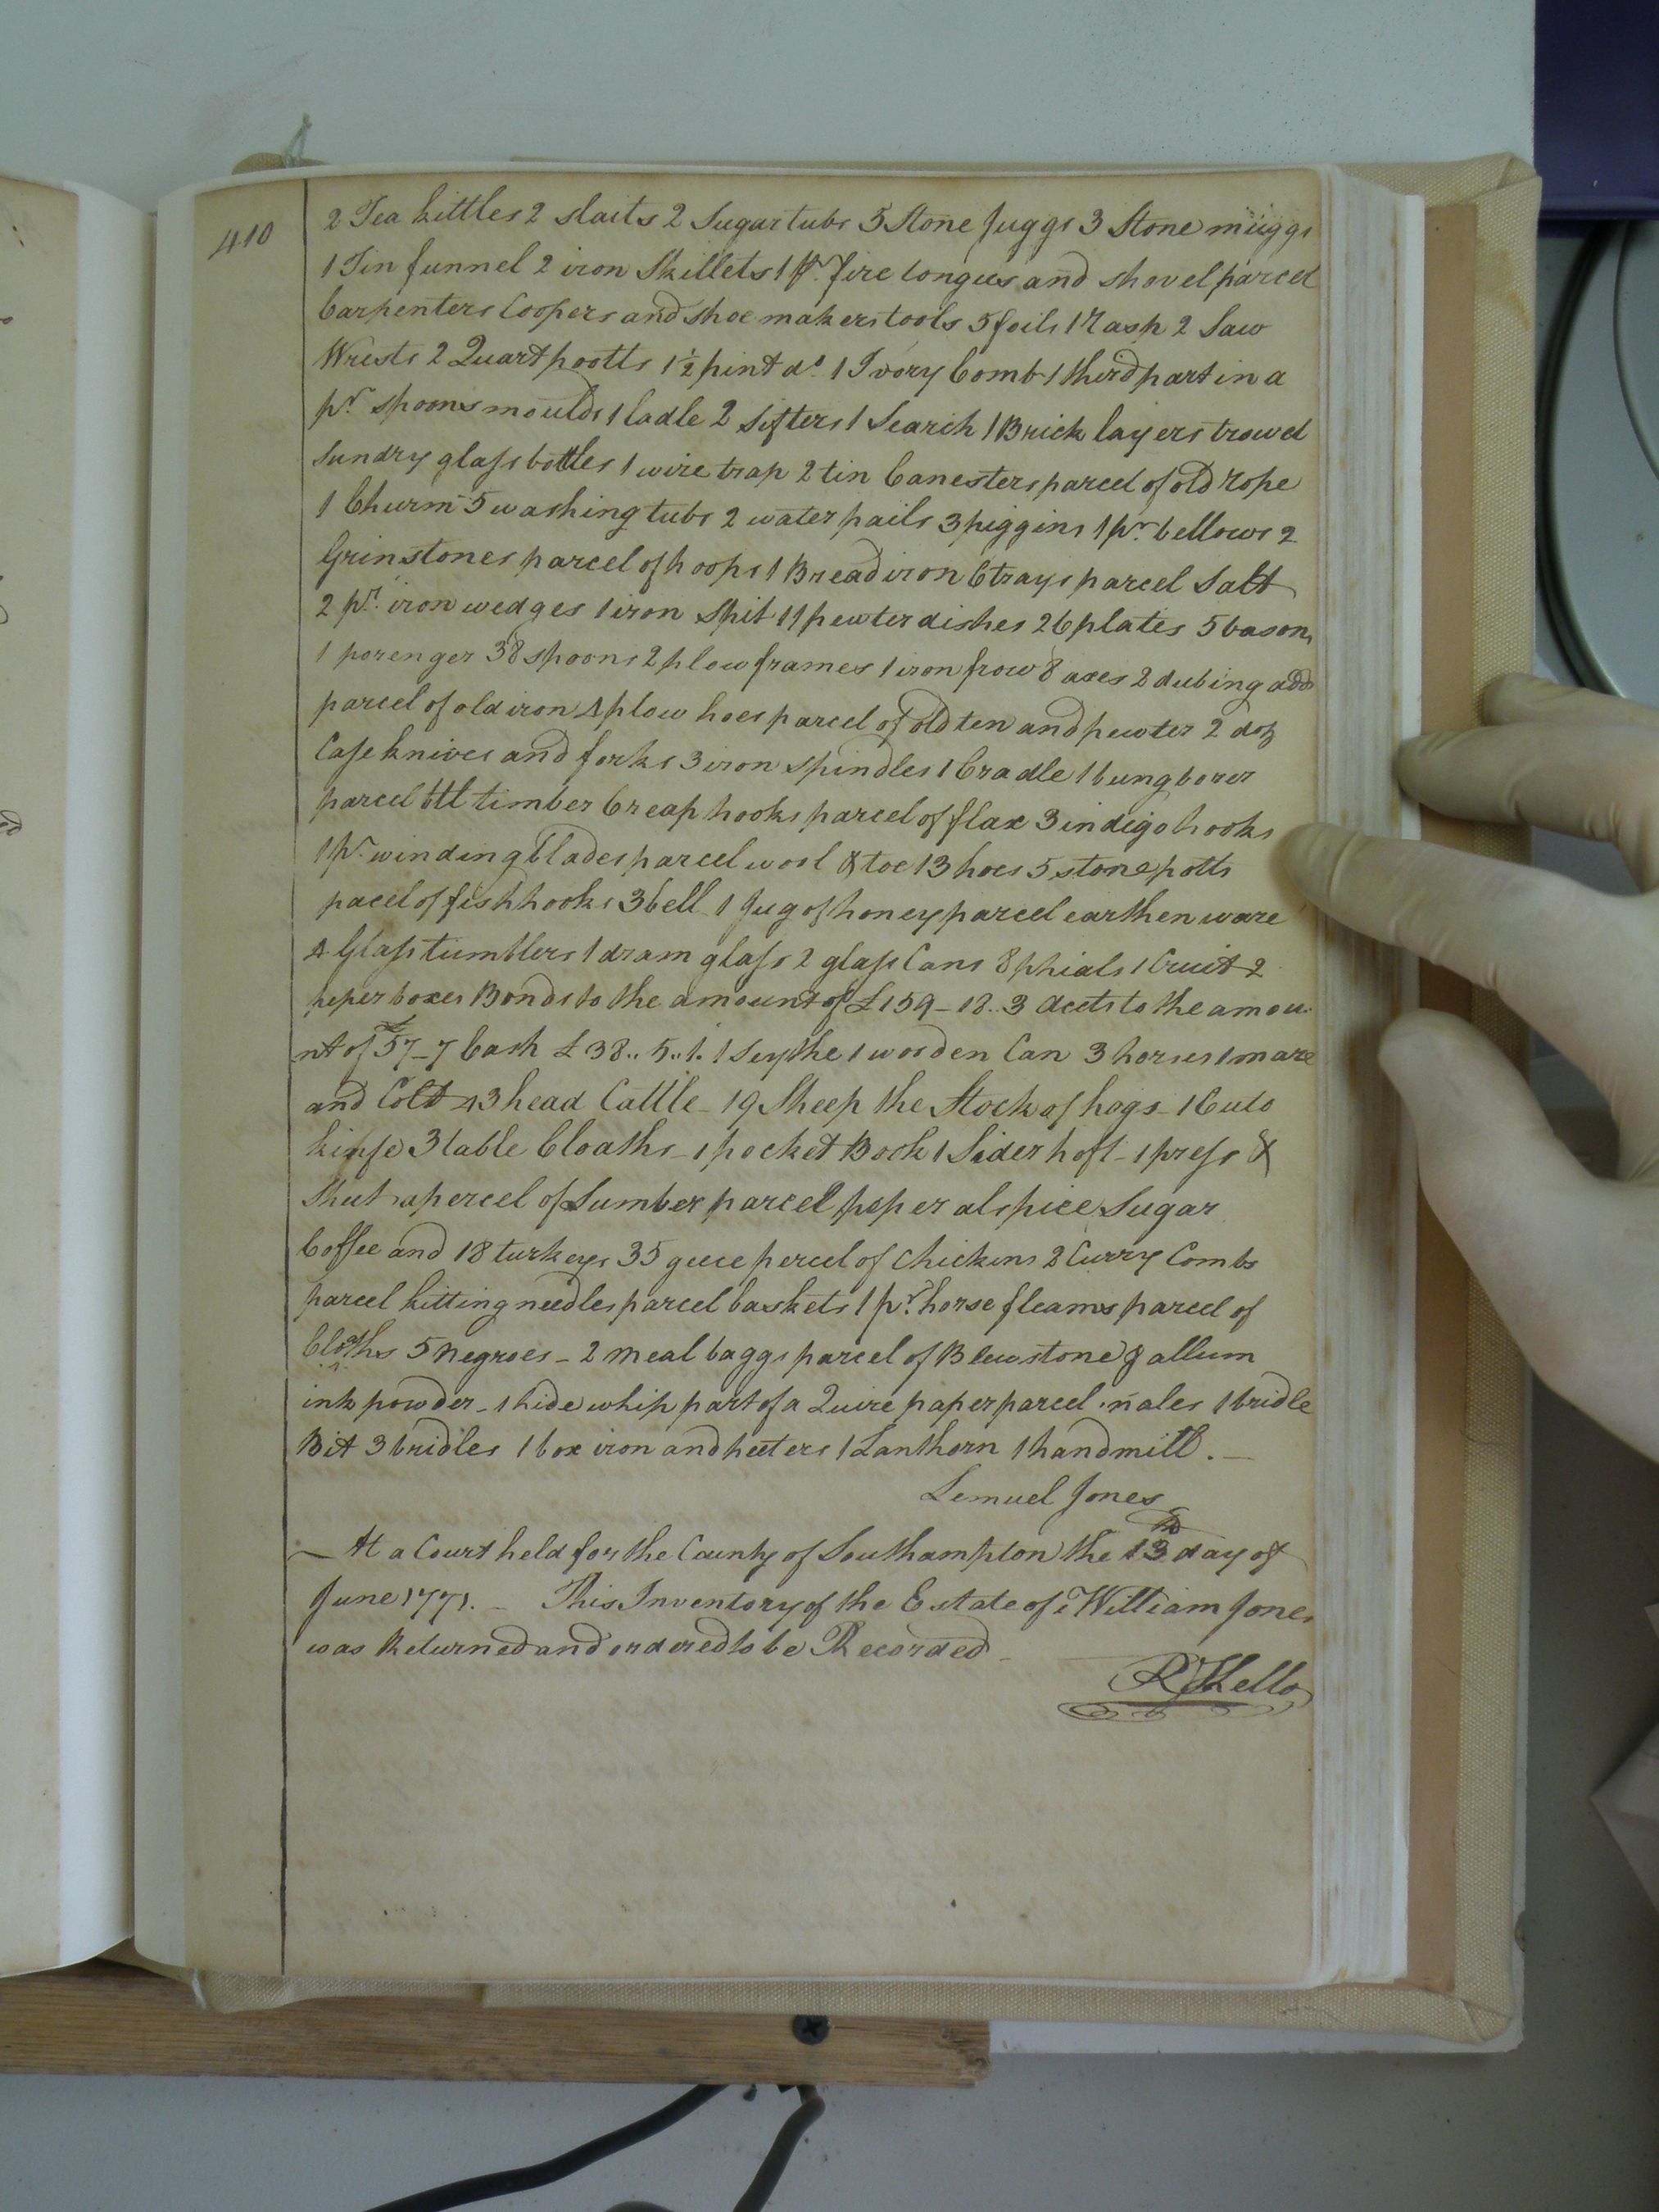 410
2 Tea kittles 2 slaits 2 Sugar tubs 5 Stone Juggs 3 Stone muggs
1 Tin funnel 2 iron Skillets 1 pr. fire tongues and shovel parcel
Carpenters Coopers and shoe makers tools 5 foils 1 Rasp 2 Saw
Wrests 2 Quart pootts 1 ½ pint do. 1 Ivory Comb 1 third part in a
pr. spoons moulds 1 ladle 2 Sifters 1 Search 1 Brick layers trowel
Sundry glass bottles 1 wire trap 2 tin Canesters parcel of old rope
1 Churm 5 washing tubs 2 water pails 3 piggins 1 pr. bellows 2
Grinstones parcel of hoops 1 Bread iron 6 trays parcel Salt
2 pr. iron wedges 1 iron Spit 11 pewter dishes 26 plates 5 basons
1 porenger 38 spoons 2 plow frames 1 iron frow 8 axes 2 dubing adds
parcel of old iron 4 plow hoes parcel of old ten and pewter 2 doz
Case knives and forks 3 iron spindles 1 Cradle 1 bung borer
parcel ttl timber 6 reap hooks parcel of flax 3 indigo hooks
1 pr. winding blades parcel wool & toe 13 hoes 5 stone potts
pacel of fish hooks 3 bell 1 Jug of honey parcel earthen ware
4 Glass tumblers 1 dram glass 2 glass Cans 8 phials 1 Cruit 2
peper boxes Bonds to the amount of £159-18..3 accts to the amou
nt of £57-7 Cash £38..5..1. 1 Scythe 1 wooden Can 3 horses 1 mare
and Colt 43 head Cattle - 19 Sheep the Stock of hogs - 1 Cuto
kinfe 3 table Cloaths - 1 pocket Book 1 Sider hoft - 1 press &
Shut a percel of Lumber parcel peper alspice Sugar
Coffee and 18 turkeys 35 geece percel of Chickins 2 Curry Combs
parcel kitting needles parcel baskets 1 pr. horse fleams parcel of
Cloths 5 Negroes - 2 meal baggs parcel of Blewstone & allum
ink powder - 1 hide whip part of a Quire paper parcel nales 1 bridle
Bit 3 bridles 1 box iron and heeters 1 Lanthorn 1 handmill. -
Lemuel Jones
- At a Court held for the County of Southampton the 13th day of
June 1771. - This Inventory of the Estate of William Jones
was Returned and ordered to be Recorded -
R Kello